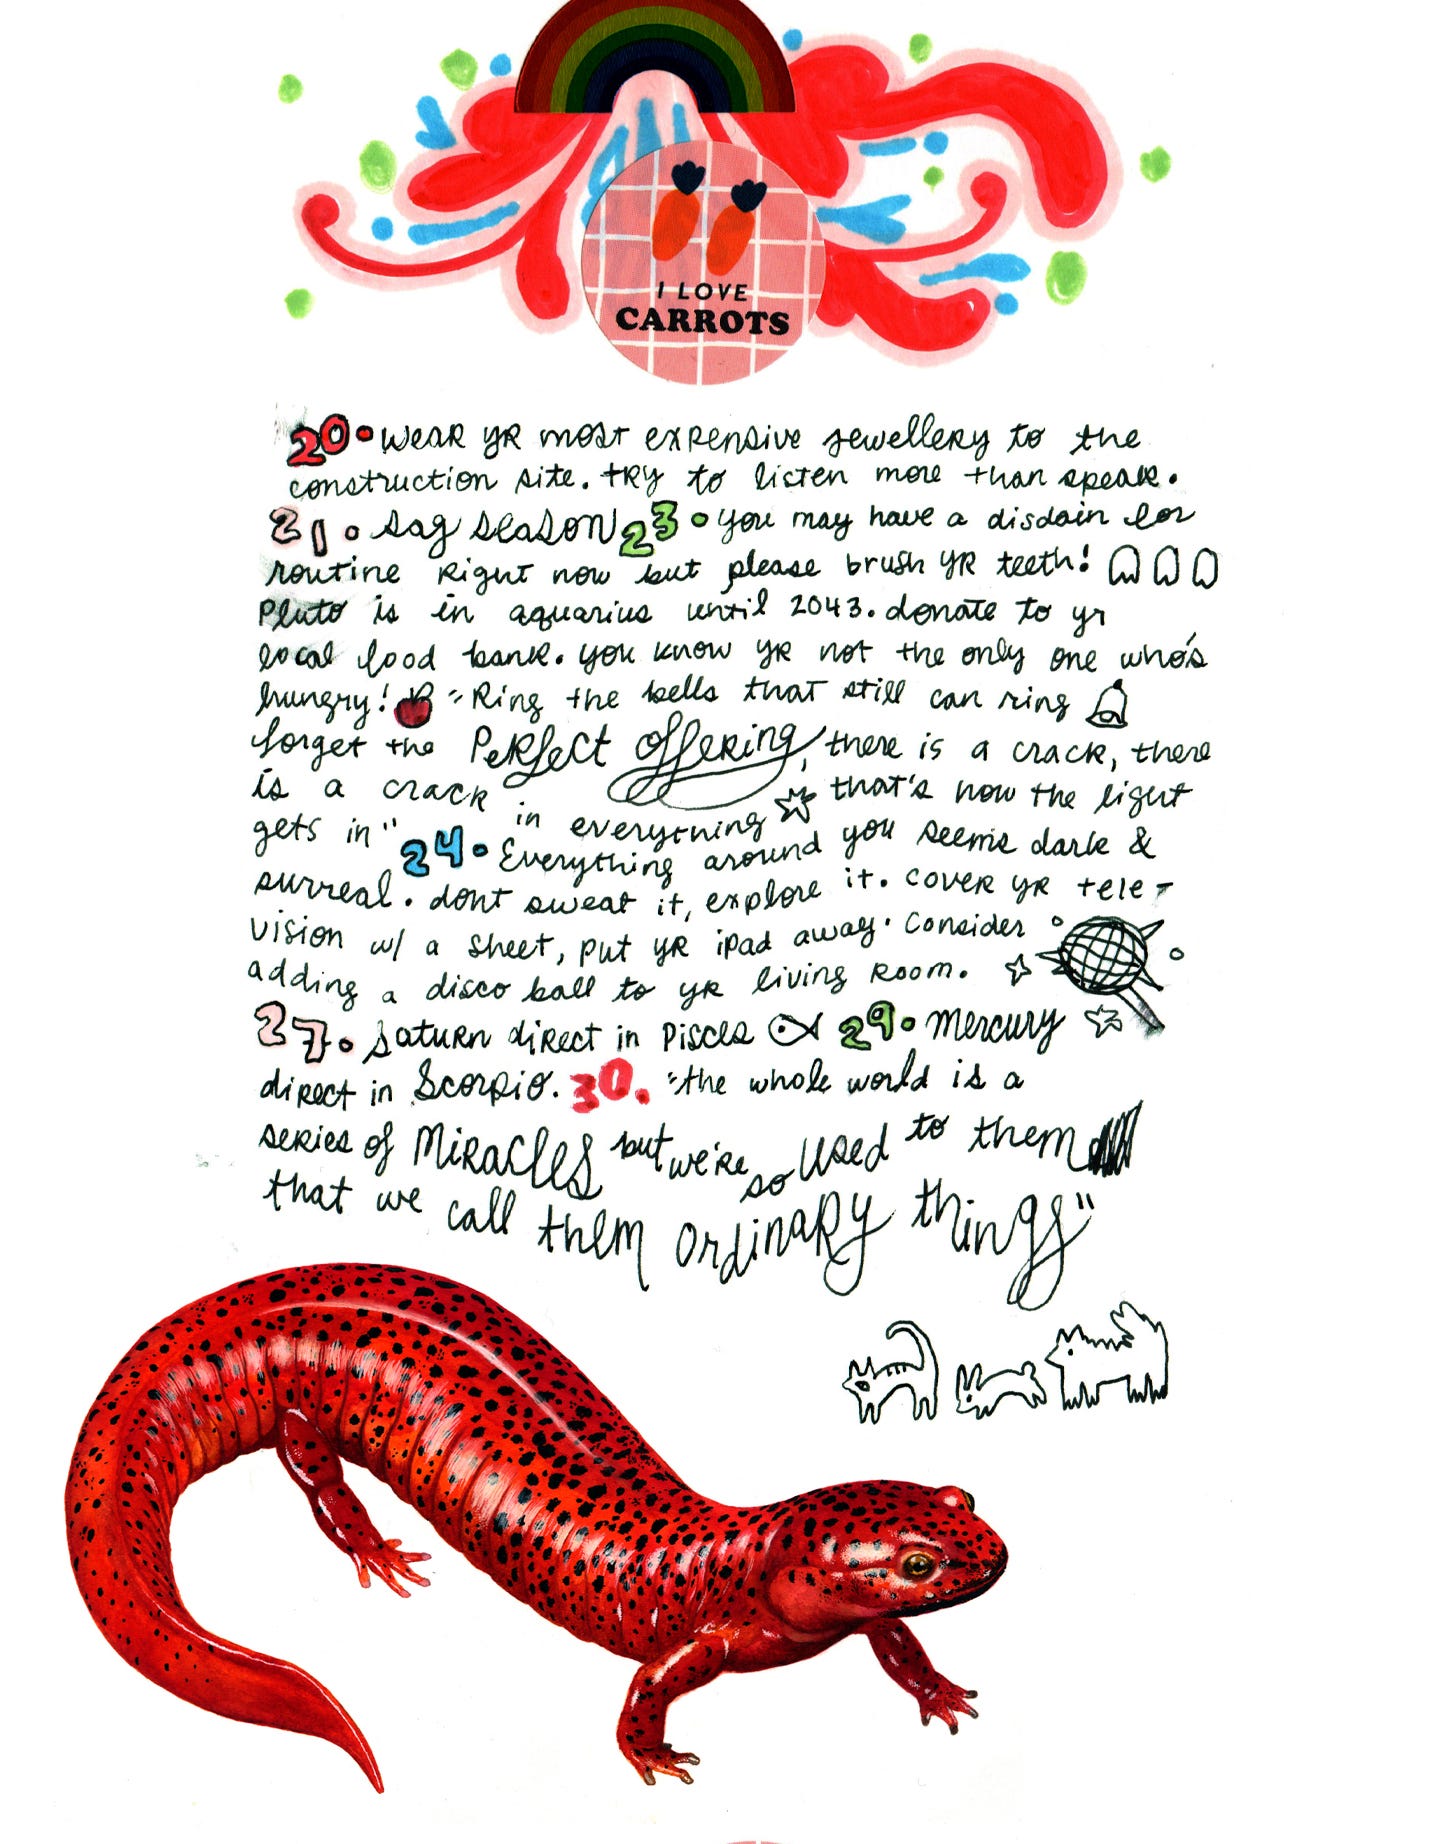 I LOVE
CARROTS
20. wear yr most expensive jewellery to the
construction site. try to listen more than speak.
21. sag season 23. you may have a disdain for
routine right now but please brush yr teeth!
Pluto is in aquarius until 2043. donate to yr
local food bank. you know yr not the only one who's
hungry! "Ring the bells that still can ring
forget the Perfect offering, there is a crack, there
is a crack in everything that's how the light
gets in" 24. Everything around you seems dark &
surreal. dont sweat it, explore it. cover yr tele-
vision w/ a sheet, put yr ipad away. Consider
adding a disco ball to yr living room.
27. Saturn direct in Pisces 29. Mercury
direct in Scorpio. 30. "the whole world is a
series of Miracles but we're so used to them
that we call them ordinary things"